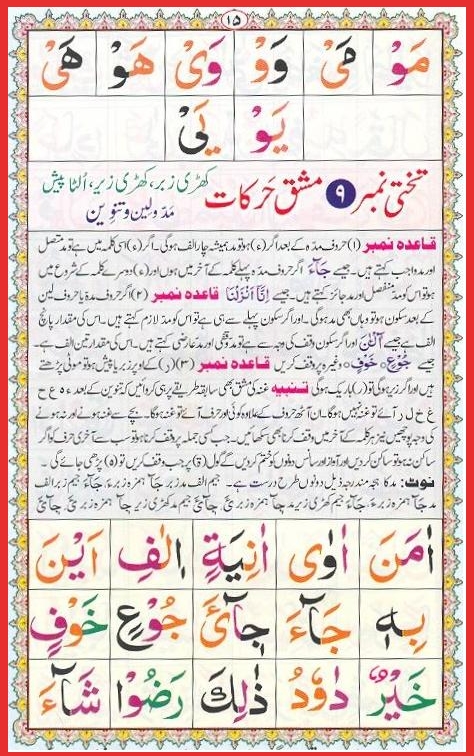 ۱۵
مَوْ مَیْ وَوْ وَیْ هَوْ هَیْ
یَوْ یَیْ
تختی نمبر ۹ مشق حَرکات کھڑی زبر، کھڑی زیر، اُلٹا پیش
مَدّو لین و تنوین
قاعدہ نمبر (۱) حروف مدّہ کے بعد اگر (ء) ہو تو مد ہمیشہ چار الف ہوگی۔ اگر (ء) اسی کلمہ میں ہے تو مد متصل
اور مد واجب کہتے ہیں۔ جیسے جَآءَ اگر حروف مدّہ پہلے کلمہ کے آخر میں ہوں اور (ء) دوسرے کلمہ کے شروع میں
ہو تو اس کو مد منفصل اور مد جائز کہتے ہیں۔ جیسے اِنَّآ اَنْزَلْنَا قاعدہ نمبر (۲) اگر حروف مدہ یا حروف لین
کے بعد سکون ہو تو وہاں بھی مد ہوگی۔ اور اگر سکون پہلے سے ہی ہے تو اس کو مد لازم کہتے ہیں۔ اس کی مقدار پانچ
الف ہے جیسے آٰلْـٰٔنَ اور اگر سکون وقف کی وجہ سے ہے تو مد وقفی اور مد عارضی کہتے ہیں۔ اس کی مقدار تین الف ہے۔
جیسے جُوْعٍ، خَوْفٍ وغیرہ پر وقف کریں قاعدہ نمبر (۳) (ر) کے اوپر زبر یا پیش ہو تو موٹی پڑھتے
ہیں اور اگر زیر ہوگی تو (ر) باریک ہوگی تنبیہ غنہ کی مشق بھی سابقہ طریقے پر ہی کروائیں کہ تنوین کے بعد ء ہ ع ح
غ خ ل ر آئے تو غنہ نہیں ہوگا۔ ان آٹھ حروف کے علاوہ کوئی اور حرف آئے تو غنہ ہوگا۔ بچے سے غنہ ہونے اور نہ ہونے
کی وجہ پوچھیں نیز ہر کلمہ کے آخر میں وقف کرنا بھی سکھائیں۔ جب کسی جملہ پر وقف کرنا ہو تو سب سے آخری حرف کو اگر
ساکن نہ ہو تو ساکن کر دیں اور آواز اور سانس دونوں کو ختم کر دیں گے گول (ۃ) پر جب وقف کریں تو (ہ) پڑھی جائے گی۔
نوٹ: مد کا ہجہ مندرجہ ذیل دونوں طرح درست ہے۔ جیم الف مد زبر جَآ ہمزہ زبر ءَ، جَآءَ جیم زبر الف
مد جَآ ہمزہ زبر ءَ جَآءَ
اٰمَنَ اٰوٰی اٰنِیَةٍ اٖلٰفِ اَیْنَ
بِهٖ جَآءَ جِایْٓءَ جُوْعٍ خَوْفٍ
خَیْرٌ دَاوٗدُ ذٰلِكَ رَضُوْا شَآءَ